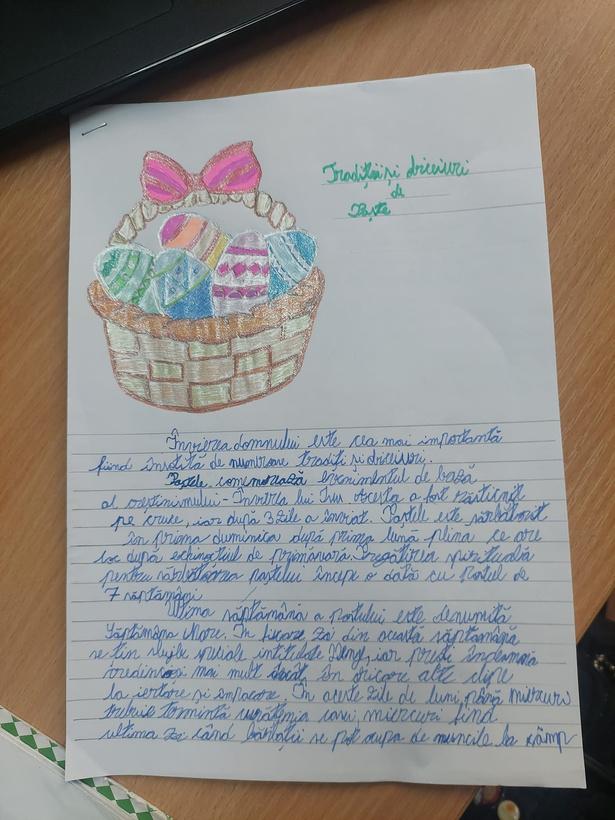 Tradiții și obiceiuri
de
Paște
Învierea domnului este cea mai importantă
fiind însoțită de numeroase tradiți și obiceiuri.
Paștele comemorează evenimentul de bază
al creștinismului - Învierea lui Isus acesta a fost răstignit
pe cruce, iar după 3 zile a înviat. Paștele este sărbătorit
în prima duminica după prima lună plina ce are
loc după echinoxțiul de primăvară. Pregătirea spirituală
pentru sărbătoarea paștelui începe o dată cu Postul de
7 săptămâni
Ultima săptămână a postului este denumită
Săptămâna Mare. În fiecare zi din această săptămână
se țin slujbe speciale intitulate Denii, iar preoți îndeamnă
credincioși mai mult decât în oricare alte clipe
la iertare și împăcare. În aceste zile de luni până miercuri
trebuie terminată curățenia casei, miercuri fiind
ultima zi când bărbații se pot ocupa de muncile la câmp